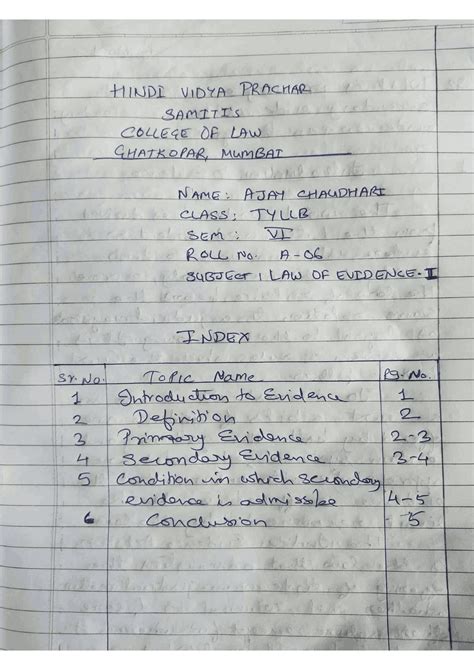 HINDI VIDYA PRACHAR
SAMITI's
COLLEGE OF LAW
GHATKOPAR, MUMBAI
NAME: AJAY CHAUDHARI
CLASS: TYLLB
SEM: VI
ROLL NO. A-06
SUBJECT: LAW OF EVIDENCE-I
INDEX
Sr. No. Topic Name Pg. No.
1 Introduction to Evidence 1
2 Definition 2
3 Primary Evidence 2-3
4 Secondary Evidence 3-4
5 Condition in which secondary
evidence is admissible 4-5
6 Conclusion 5